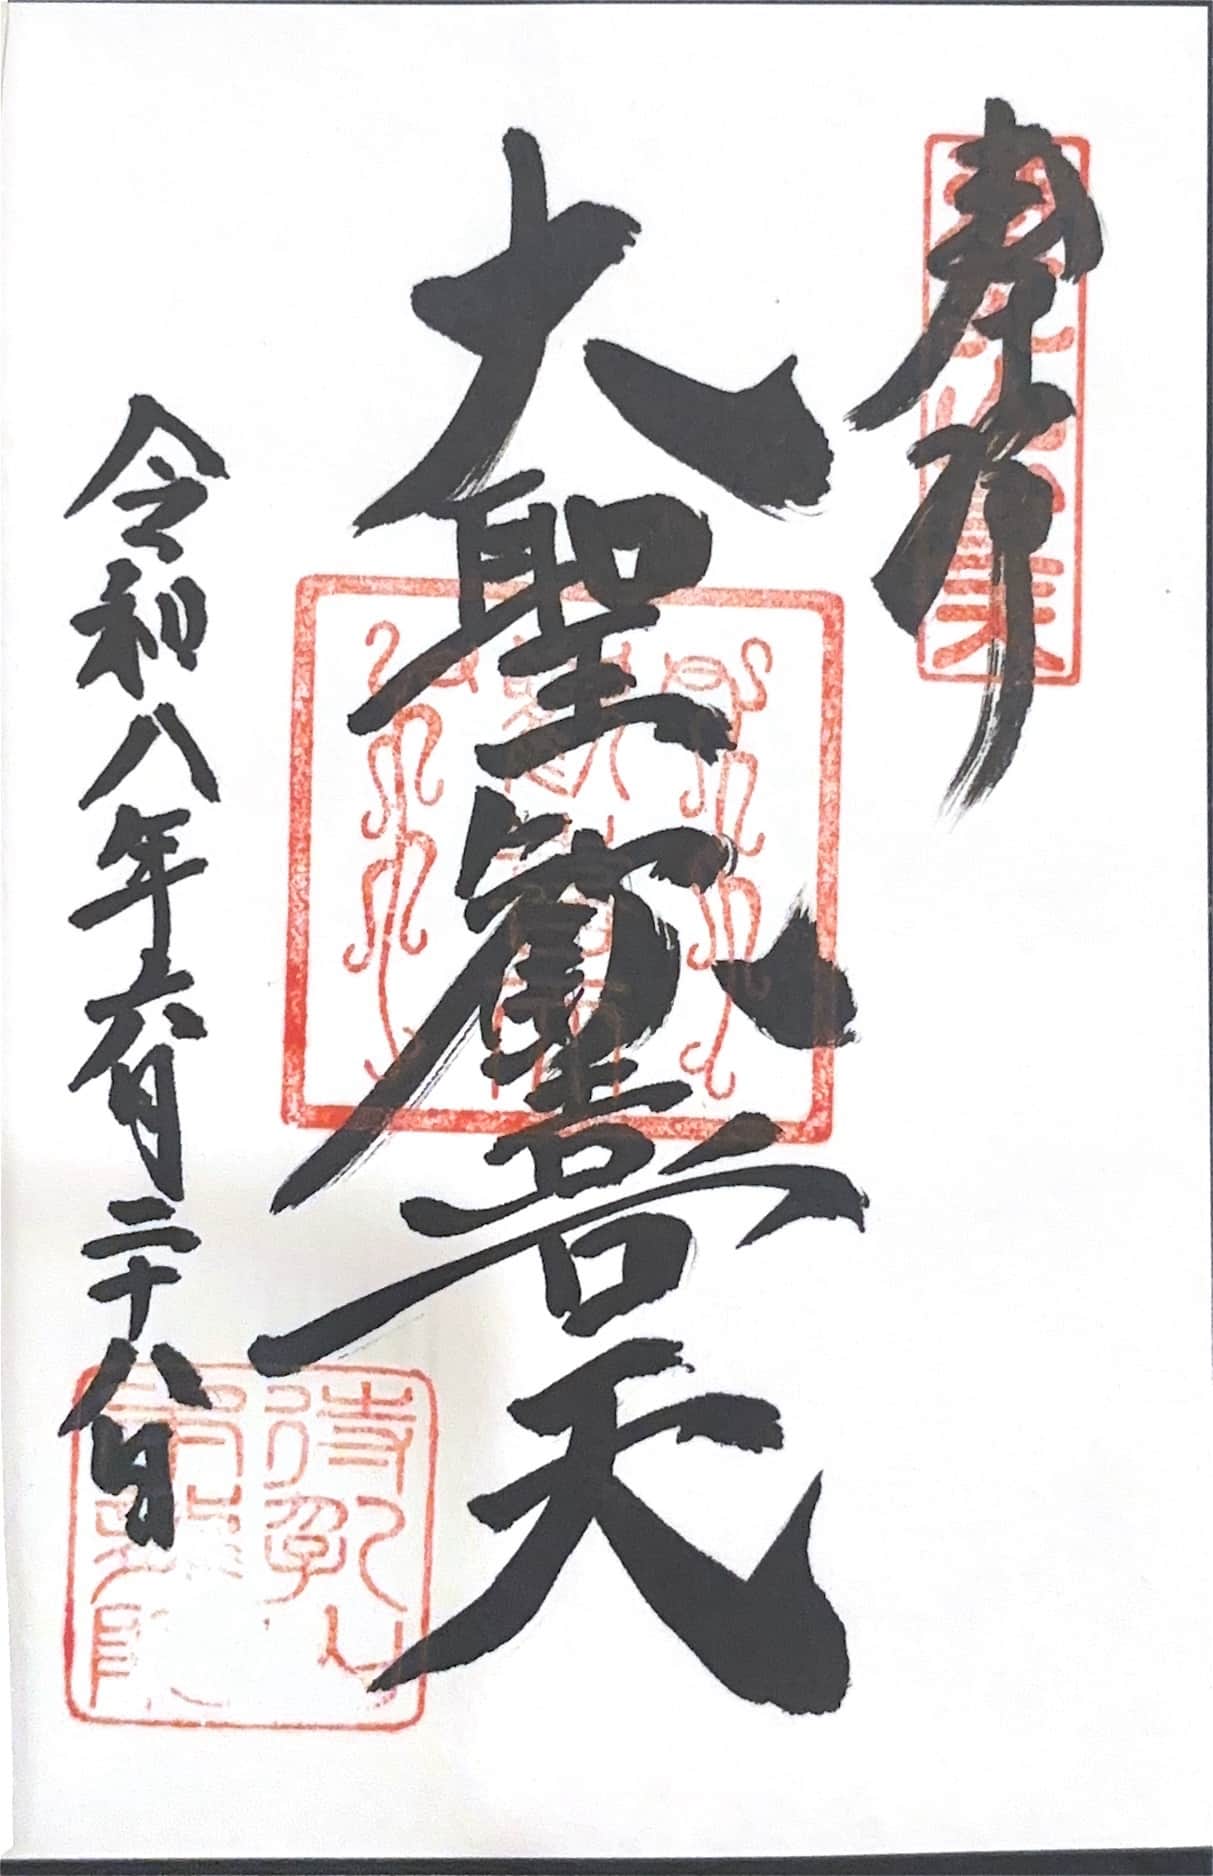 奉拝
大聖歓喜天
令和八年六月二十八日
待乳山